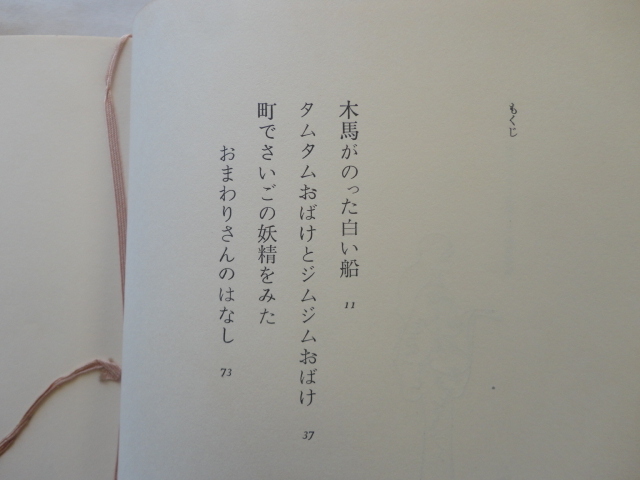 もくじ
木馬がのった白い船 11
タムタムおばけとジムジムおばけ 37
町でさいごの妖精をみた
おまわりさんのはなし 73